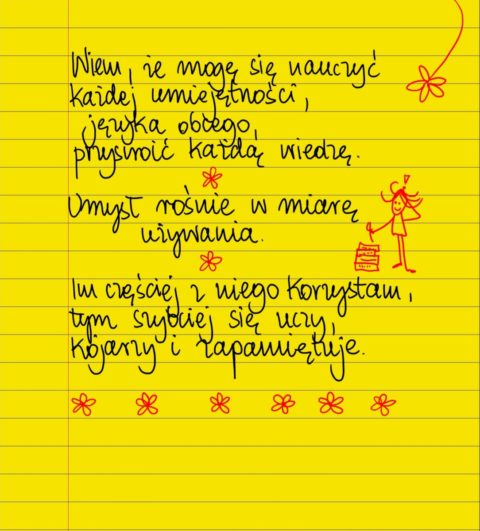 Wiem, że mogę się nauczyć
każdej umiejętności,
języka obcego,
przyswoić każdą wiedzę.
Umysł rośnie w miarę
używania.
Im częściej z niego korzystam,
tym szybciej się uczy,
kojarzy i zapamiętuje.